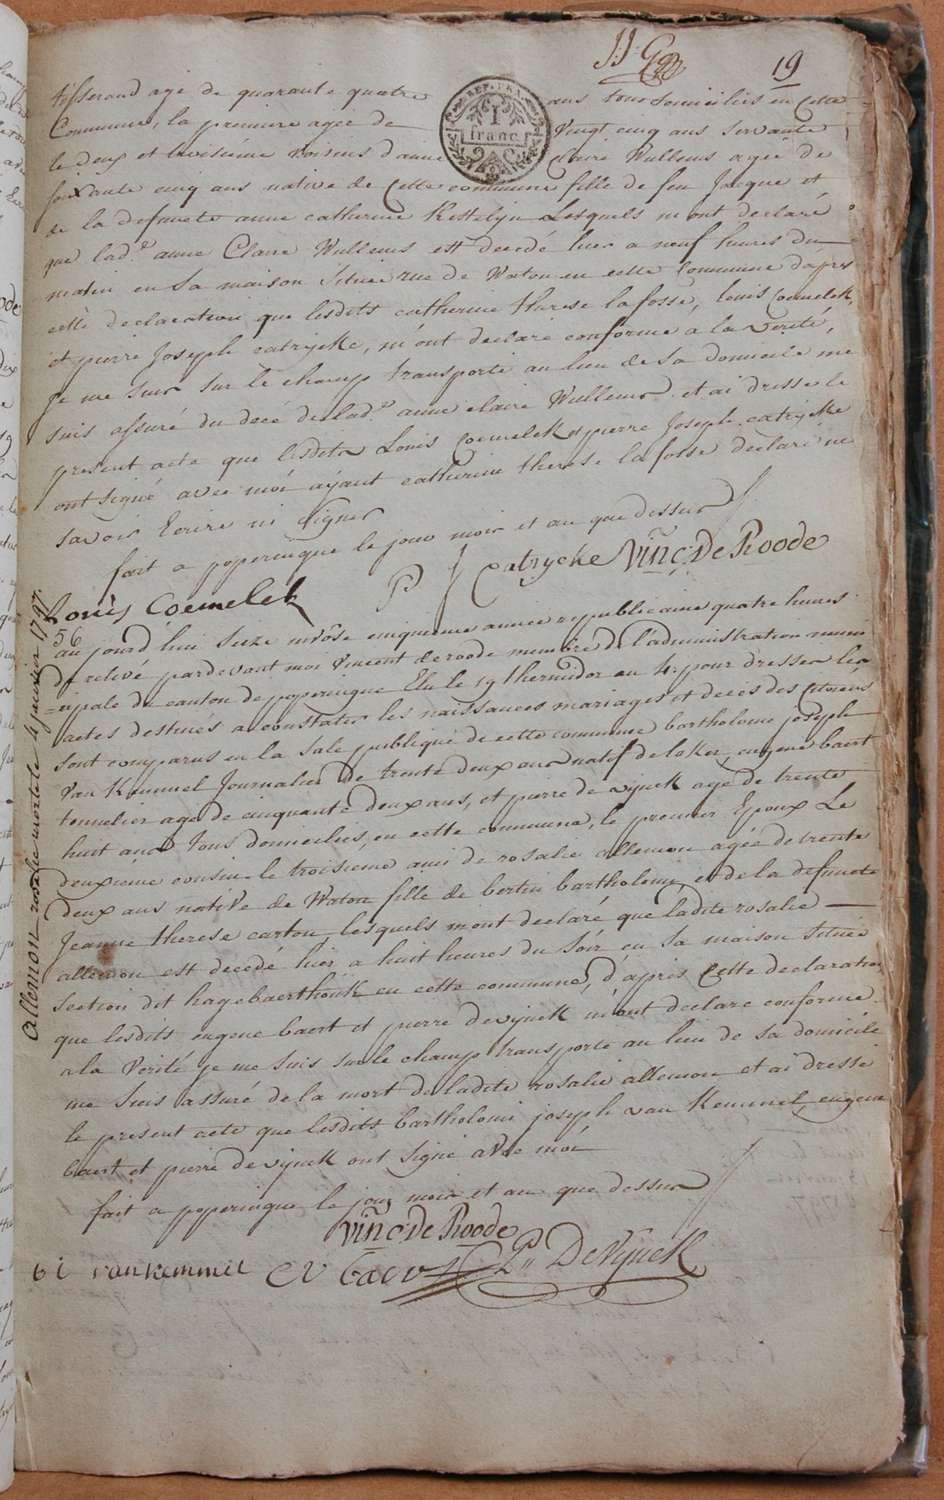 19
REP. FRA.
1
franc
tisserand agé de quarante quatre ans tous domiciliés en cette
Commune, la premiere agée de vingt cinq ans servante
le deux et troisieme voisins d'anne Claire Wullems agée de
soixante cinq ans native de cette commune fille de feu Jacque et
de la defuncte anne catherine Kestelyn Lesquels m'ont declaré
que lad.e anne Claire Wullems est decedé hier a neuf heures du
matin en sa maison située rue de Watou en cette commune d'apres
cette declaration que lesdits catherine therese lafosse, louis Coemelck,
et pierre Joseph catrycke, m'ont declaré conforme a la verité,
je me suis sur le champ transporté au lieu de sa domicile me
suis assuré du decé de lad.e anne claire Wullems et ai dressé le
present acte que lesdits Louis Coemelck et pierre Joseph catrycke
ont signé avec moi ayant catherine therese lafosse declaré ne
savoir Ecrire ni signer
fait a poperingue le jour mois et an que dessus
P J Catrycke Vinc. De Roode
Louis Coemelck
56
aujourd'hui seize nivôse cinquieme année republicaine quatre heures
de relivé pardevant moi Vincent de roode membre de l'administration muni
=cipale du canton de poperingue Elu le 19 thermidor an 4. pour dresser les
actes destinés a constater les naissances mariages et decès des Citoiens
sont comparus en la sale publique de cette commune bartholomé joseph
Van Kemmel Journalier de trente deux ans natif de loker, eugene baert
tonnelier agé de cinquante deux ans, et pierre de vynck agé de trente
huit ans Tous domiciliés en cette commune, le premier Epoux Le
deuxieme cousin le troisieme ami de rosalie allemon agée de trente
deux ans native de Watou fille de bertin bartholome, et de la defuncte
Jeanne therese carton lesquels m'ont declaré que ladite rosalie
allemon est decedé hier a huit heures du soir en sa maison située
section dit hagebaerthouk en cette commune, d'après cette declaration
que lesdits eugene baert et pierre de vynck m'ont declaré conforme
a la verité je me suis sur le champ transporté au lieu de sa domicile
me suis assuré de la mort de ladite rosalie allemon et ai dressé
le present acte que lesdits bartholomé joseph van Kemmel, eugene
baert et pierre de vynck ont signé avec moi
fait a poperingue le jour mois et an que dessus
Vinc. De Roode
b i vankemmel P. De Vynck
allemon rosalie morte le 4 janvier 1797.